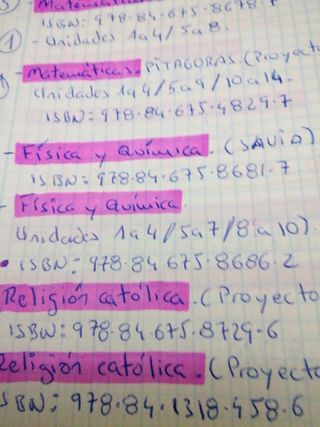 Matemáti
ISBN: 978-84-675-8678-7
1
- Unidades 1a4/5a8.
- Matemáticas. PITÁGORAS. (Proyecto
Unidades 1a4/5a9/10a14.
ISBN: 978-84-675-4829-7
- Física y Química. (SAVIA)
ISBN: 978-84-675-8681-7
- Física y Química.
Unidades 1a4/5a7/8a10)
• ISBN: 978-84-675-8686-2
Religión católica. (Proyecto
ISBN: 978-84-675-8729-6
Religión católica. (Proyecto
SBN: 978-84-1318-458-6